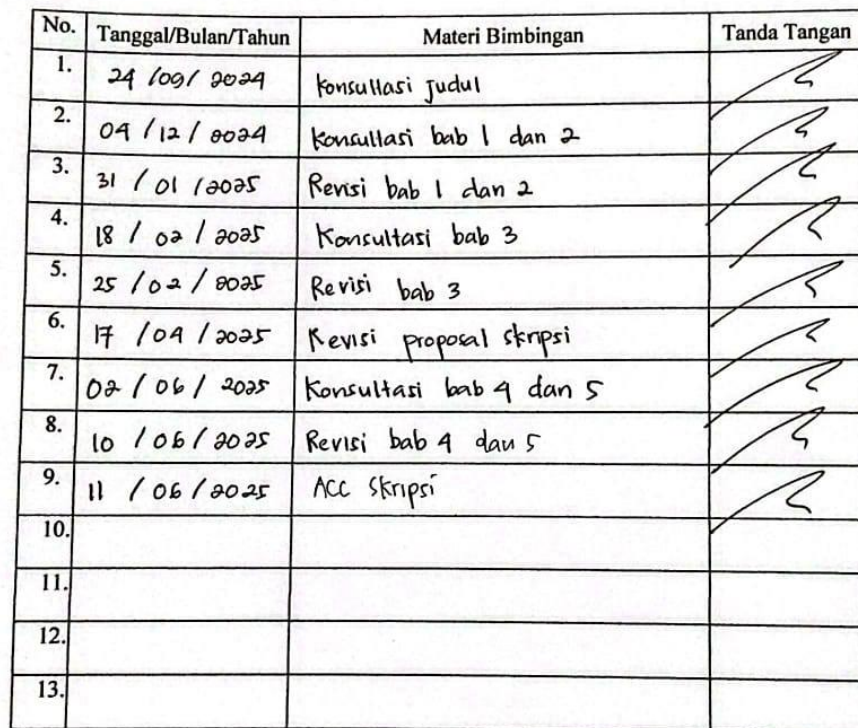 No. Tanggal/Bulan/Tahun Materi Bimbingan Tanda Tangan
1. 24 /09/ 2024 Konsultasi Judul
2. 04 / 12 / 2024 Konsultasi bab 1 dan 2
3. 31 / 01 / 2025 Revisi bab 1 dan 2
4. 18 / 02 / 2025 Konsultasi bab 3
5. 25 / 02 / 2025 Revisi bab 3
6. 17 / 04 / 2025 Revisi proposal skripsi
7. 02 / 06 / 2025 Konsultasi bab 4 dan 5
8. 10 / 06 / 2025 Revisi bab 4 dan 5
9. 11 / 06 / 2025 ACC Skripsi
10.
11.
12.
13.